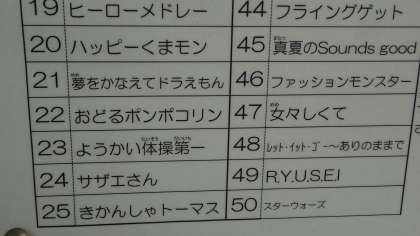 19 ヒーローメドレー
20 ハッピーくまモン
21 夢をかなえてドラえもん
22 おどるポンポコリン
23 ようかい体操第一
24 サザエさん
25 きかんしゃトーマス
44 フライングゲット
45 真夏のSounds good
46 ファッションモンスター
47 女々しくて
48 レット・イット・ゴー～ありのままで
49 R.Y.U.S.E.I
50 スターウォーズ